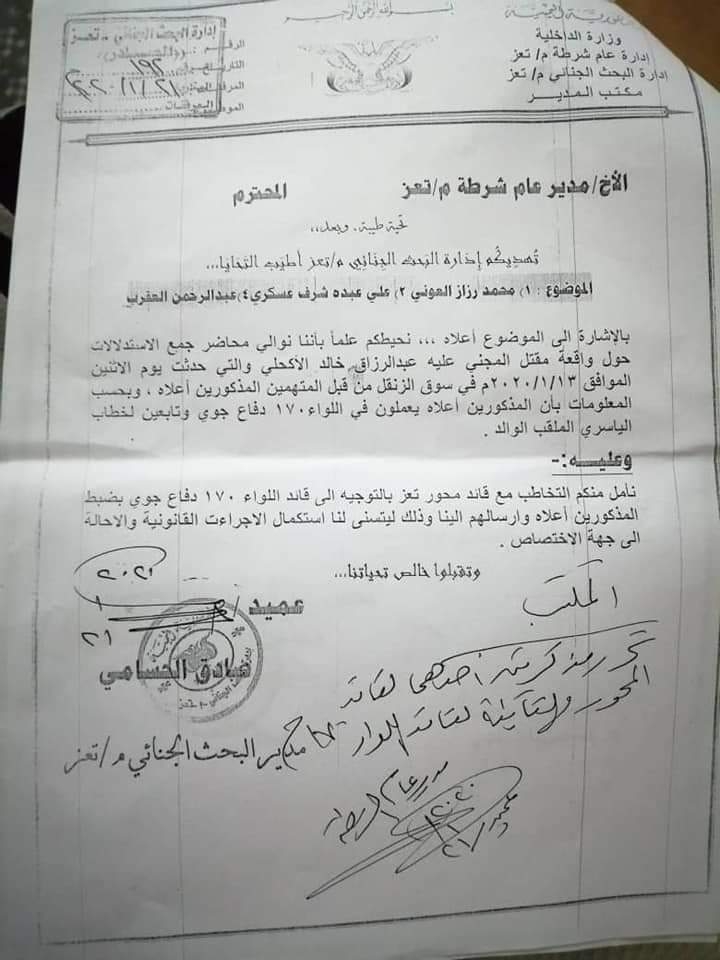 بسم الله الرحمن الرحيم
وزارة الداخلية
إدارة عام شرطة م/ تعز
إدارة البحث الجنائي م/ تعز
مكتب المدير
إدارة البحث الجنائي - تعز
الرقم
التاريخ
الأخ/مدير عام شرطة م/تعز المحترم
تحية طيبة. وبعد،،
تُهديكم إدارة البحث الجنائي م/تعز أطيب التحايا...
الموضوع : ١/ محمد رزاز العوني ٢/ علي عبده شرف عسكري ٤/عبدالرحمن العقرب
بالإشارة الى الموضوع أعلاه ،،، نحيطكم علماً بأننا نوالي محاضر جمع الاستدلالات
حول واقعة مقتل المجني عليه عبدالرزاق خالد الأكحلي والتي حدثت يوم الاثنين
الموافق ٢٠٢٠/١/١٣م في سوق الزنقل من قبل المتهمين المذكورين أعلاه ، وبحسب
المعلومات بأن المذكورين أعلاه يعملون في اللواء ١٧٠ دفاع جوي وتابعين لخطاب
الياسري الملقب الوالد .
وعليـــه :-
نأمل منكم التخاطب مع قائد محور تعز بالتوجيه الى قائد اللواء ١٧٠ دفاع جوي بضبط
المذكورين أعلاه وارسالهم الينا وذلك ليتسنى لنا استكمال الاجراءت القانونية والاحالة
الى جهة الاختصاص .
وتقبلوا خالص تحياتنا،،،
عميد /
صادق الحسامي
مدير البحث الجنائي م/تعز
المكتب
مدير عام